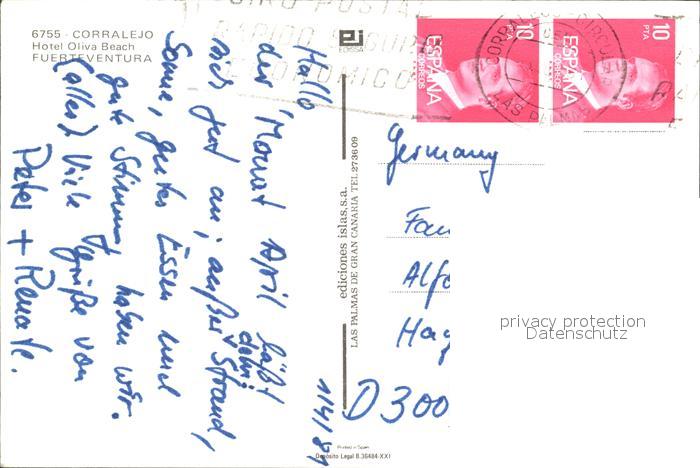 6755 - CORRALEJO
Hotel Oliva Beach
FUERTEVENTURA
GIRO POSTAL
RAPIDO SEGURO
ECONOMICO
EDISSA
10 PTA
ESPAÑA
CORREOS
10 PTA
ESPAÑA
CORREOS
LAS PALMAS
1/4/89
Hallo
der Monat April läßt
sich gut an; außer Strand,
Sonne, gutes Essen und
gute Stimmung haben wir.
(alles) Viele Grüße von
Peter + Renate.
ediciones islas, s.a.
LAS PALMAS DE GRAN CANARIA TEL 273609
Germany
Fam
Alfo
Hag
D 300
privacy protection
Datenschutz
Printed in Spain
Depósito Legal B. 36484-XXI